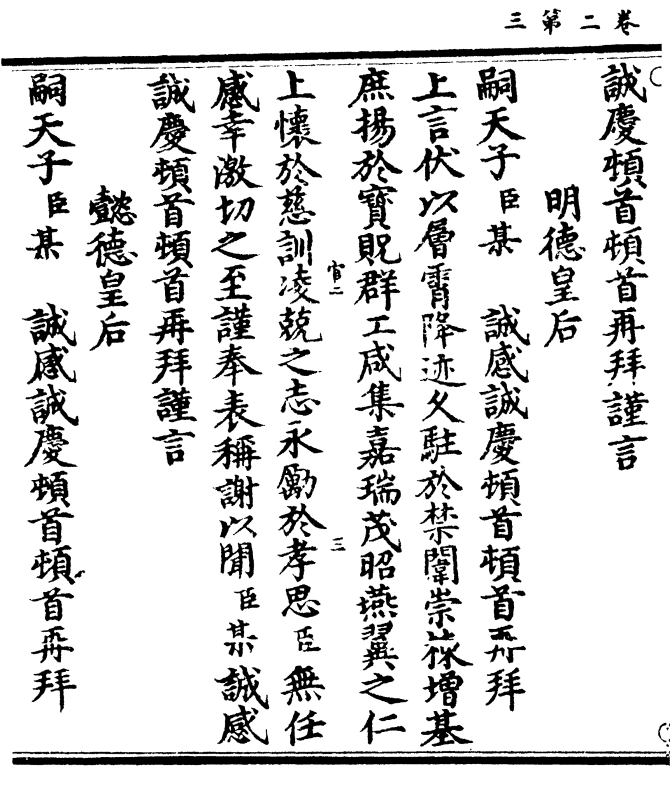 卷二第三
誠慶頓首頓首再拜謹言
明德皇后
嗣天子臣某 誠感誠慶頓首頓首再拜
上言伏以層霄降迹久駐於禁闈崇祿增基
庶揚於寶貺群工咸集嘉瑞茂昭燕翼之仁
官二
三
上懷於慈訓凌兢之志永勵於孝思臣無任
感幸激切之至謹奉表稱謝以聞臣某誠感
誠慶頓首頓首再拜謹言
懿德皇后
嗣天子臣某 誠感誠慶頓首頓首再拜